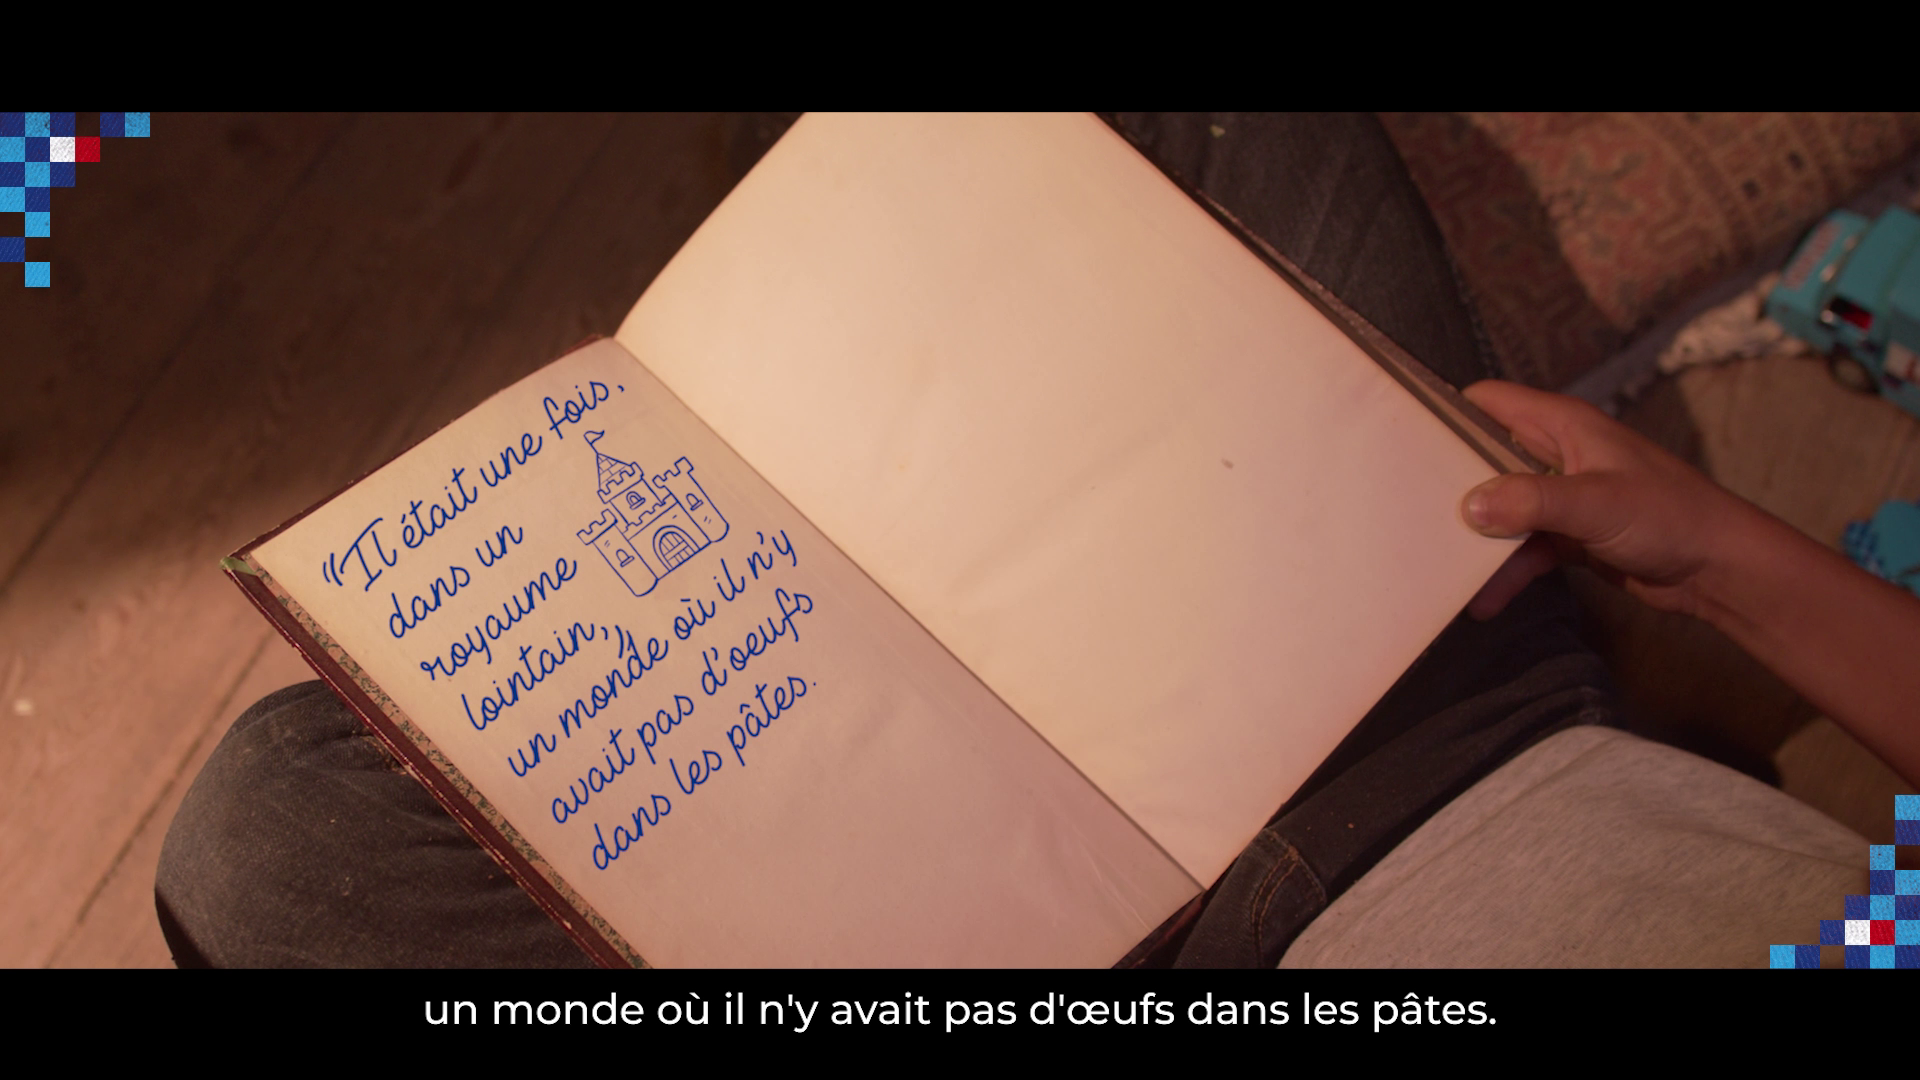 “Il était une fois,
dans un
royaume
lointain,”
un monde où il n'y
avait pas d'oeufs
dans les pâtes.
un monde où il n'y avait pas d'œufs dans les pâtes.